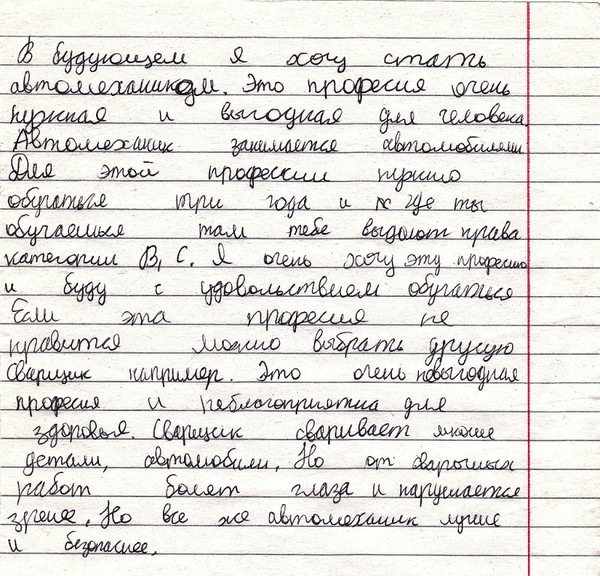 В будующем я хочу стать
автомехаником. Это професия очень
нужная и выгодная для человека.
Автомеханик занимается автомобилями
Для этой профессии нужно
обучаться три года и где ты
обучаешься там тебе выдают права
категории В, С. Я очень хочу эту професию
и буду с удовольствием обучаться
Если эта професия не
нравится можно выбрать другую
Сварщик например. Это очень выгодная
професия и неблогоприятна для
здоровья. Сварщик сваривает
детали, автомобили. Но от сварочных
работ болят глаза и нарушается
зрение. Но все же автомеханик лучше
и безопаснее.